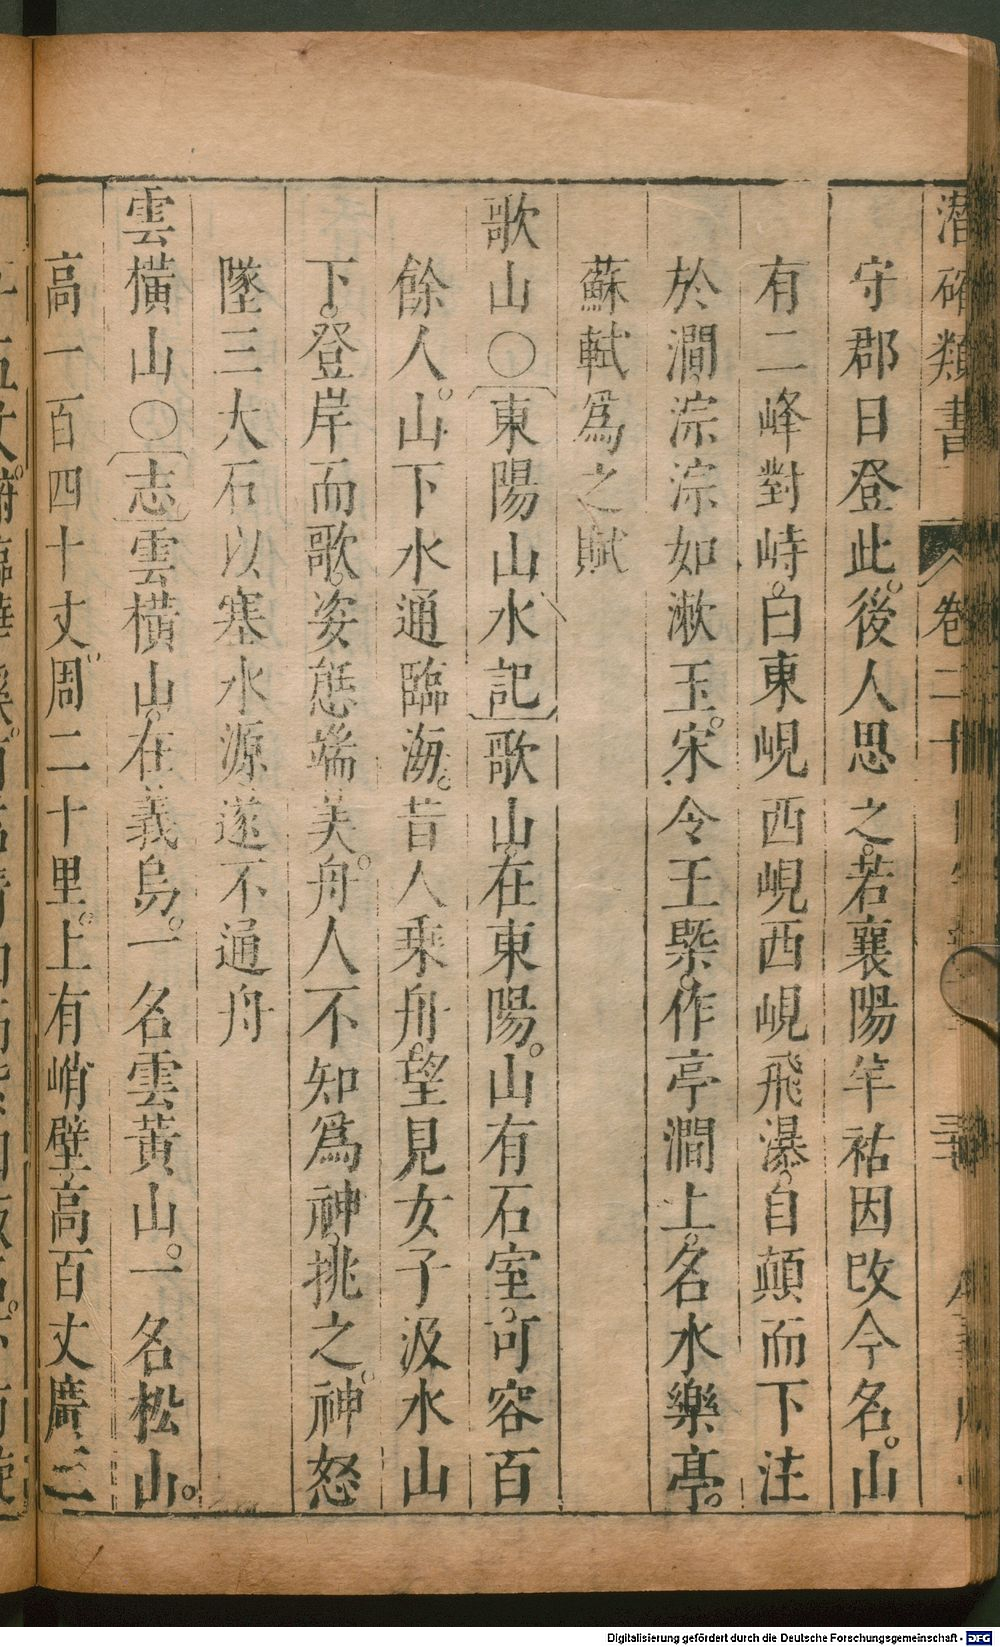 潛確類書 卷二十
守郡日登此。後人思之。若襄陽羊祜因改今名。山
有二峰對峙。曰東峴西峴西峴飛瀑。自顛而下注
於澗淙淙如漱玉。宋令王槩。作亭澗上。名水樂亭。
蘇軾爲之賦
歌山○東陽山水記歌山。在東陽。山有石室。可容百
餘人。山下水通臨海。昔人乘舟。望見女子汲水山
下。登岸而歌。姿態端美。舟人不知爲神。挑之。神怒
墜三大石以塞水源遂不通舟
雲橫山○志雲橫山。在義烏。一名雲黃山。一名松山。
高一百四十丈。周二十里。上有峭壁高百丈廣三
Digitalisierung gefördert durch die Deutsche Forschungsgemeinschaft - DFG